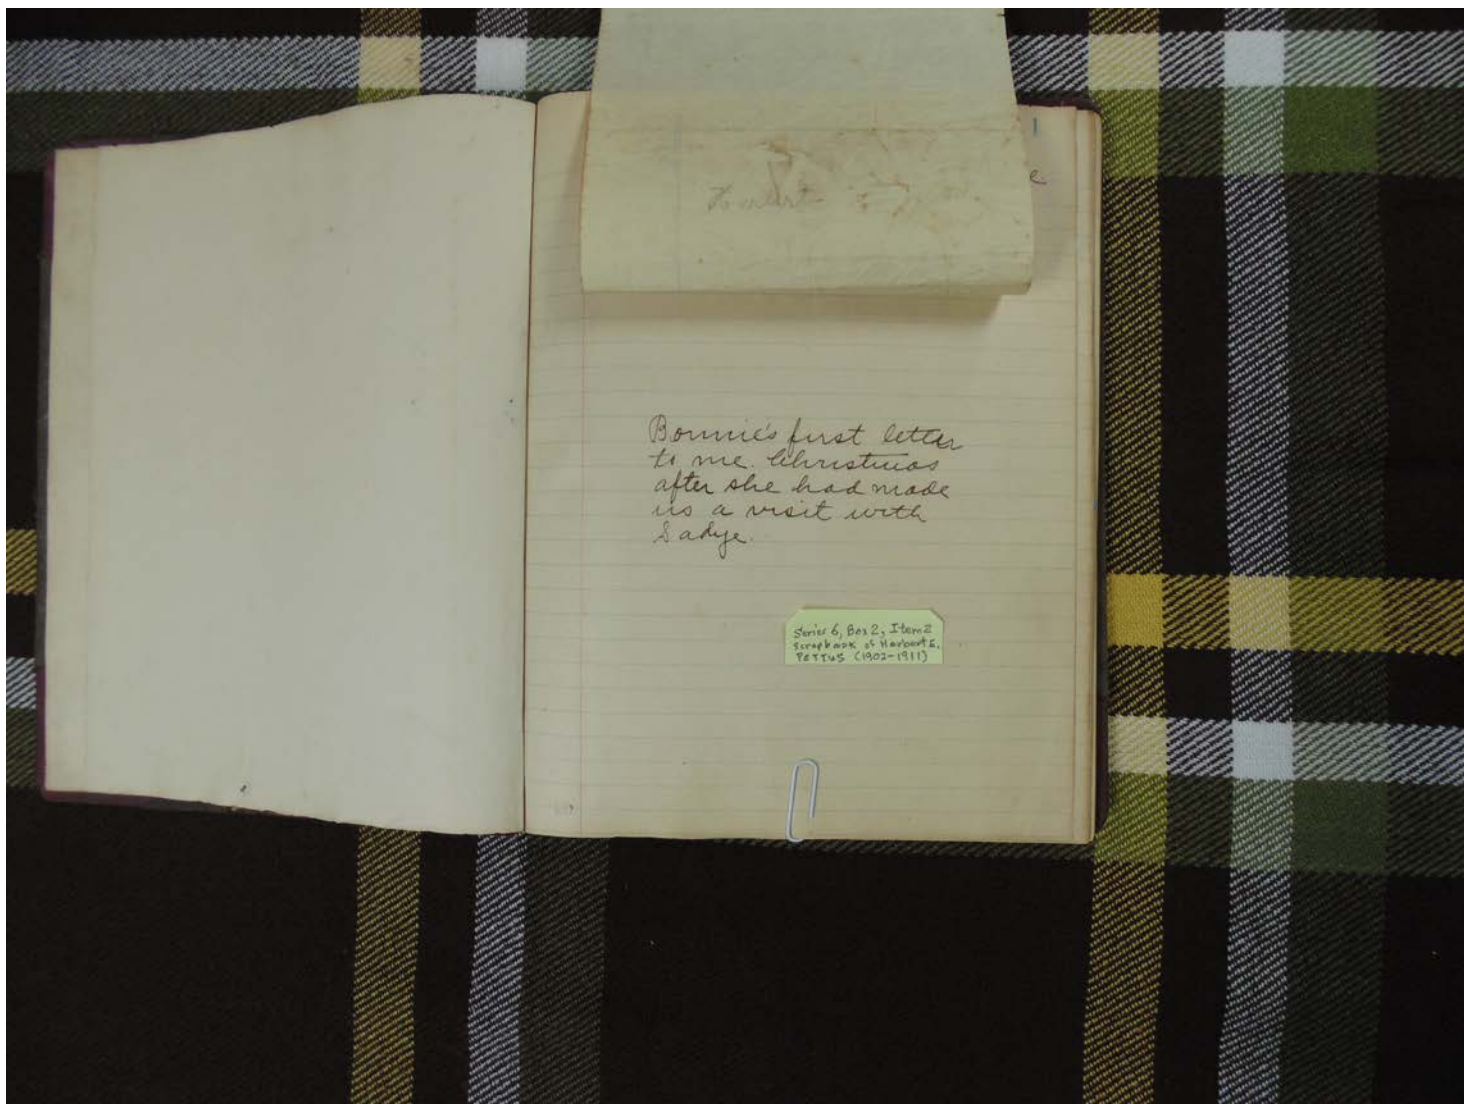 e
Herbert
Bonnie's first letter
to me. Christmas
after she had made
us a visit with
Sadye.
Series 6, Box 2, Item 2
Scrapbook of Herbert E.
PETTUS (1902-1911)